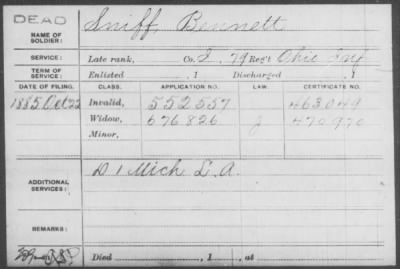 DEAD
NAME OF SOLDIER: Sniff, Bennett
SERVICE: Late rank, Co. I, 79 Reg't Ohio Inf
TERM OF SERVICE: Enlisted , 1 Discharged , 1
DATE OF FILING. CLASS. APPLICATION NO. LAW. CERTIFICATE NO.
1885 Oct 22 Invalid, 552557 463049
Widow, 676826 470970
Minor,
ADDITIONAL SERVICES: D 1 Mich L.A.
REMARKS:
Died , 1 , at